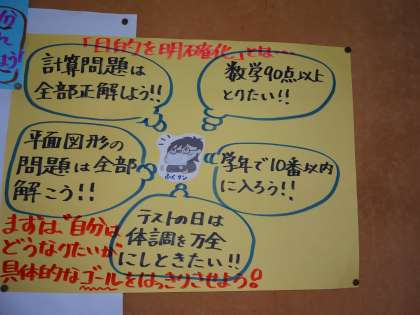 「目的を明確化」とは…
計算問題は
全部正解しよう!!
数学90点以上
とりたい!!
平面図形の
問題は全部
解こう!!
学年で10番以内
に入ろう!!
テストの日は
体調を万全
にしときたい!!
まずは、自分は
どうなりたいか、
具体的なゴールをはっきりさせよう!